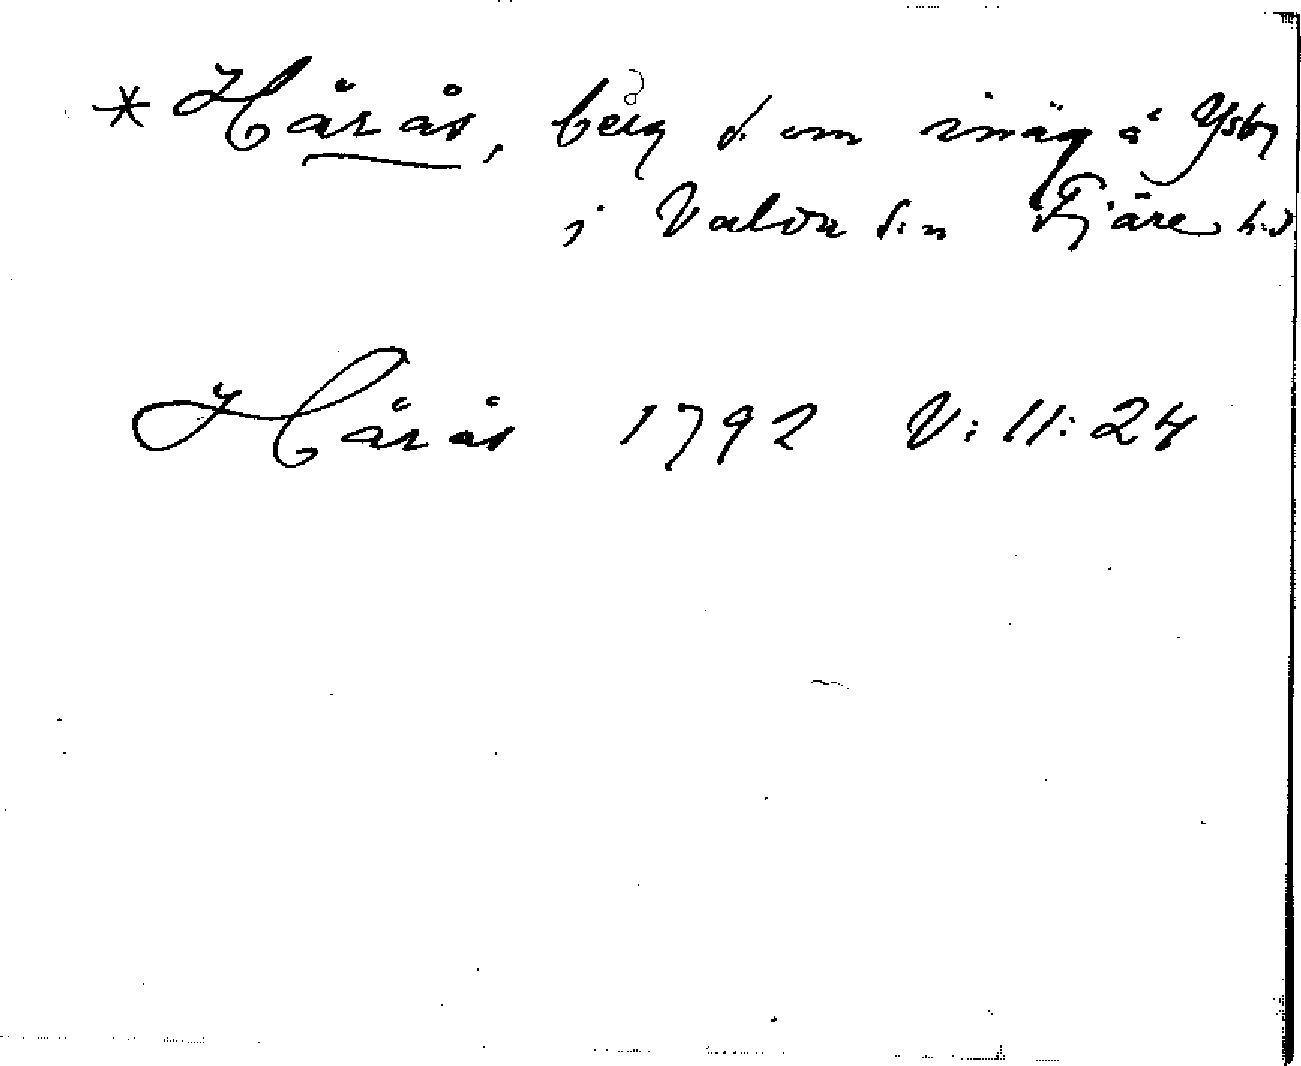 * Håsås, berg s. om inäg å Ysby
i Valda s:n Fjäre h:d
Håsås 1792 V:11:24